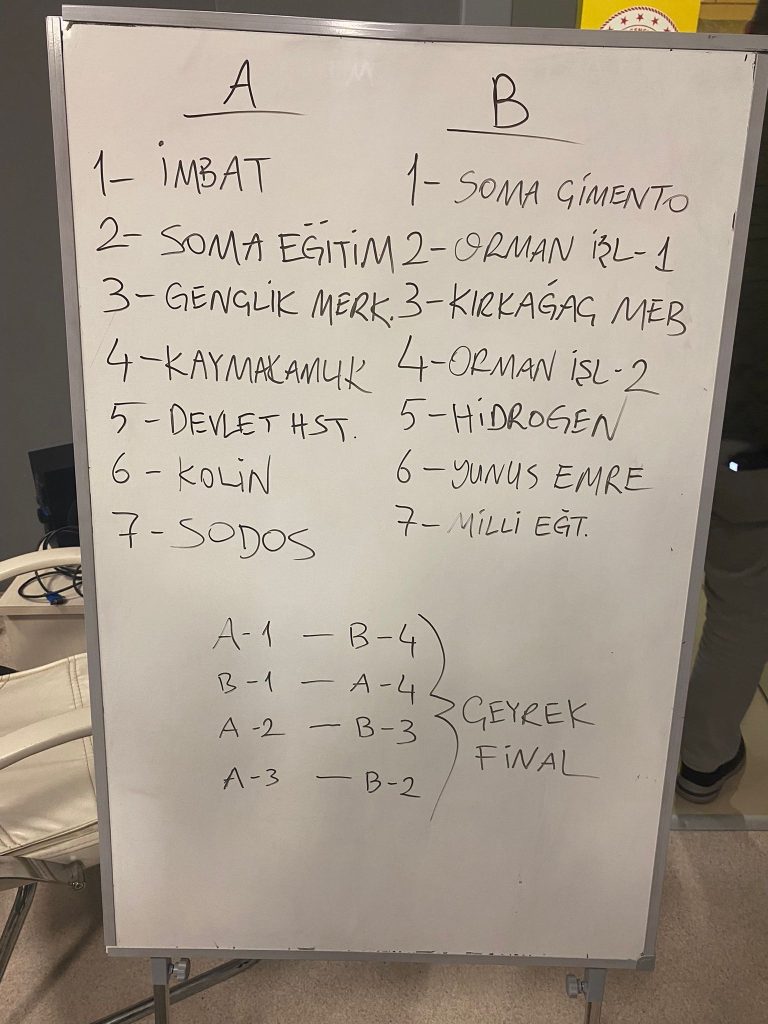 A
1- İMBAT
2- SOMA EĞİTİM
3- GENÇLİK MERK.
4- KAYMAKAMLIK
5- DEVLET HST.
6- KOLİN
7- SODOS
B
1- SOMA ÇİMENTO
2- ORMAN İŞL-1
3- KIRKAĞAÇ MEB
4- ORMAN İŞL-2
5- HİDROGEN
6- YUNUS EMRE
7- MİLLİ EĞT.
A-1 — B-4
B-1 — A-4
A-2 — B-3
A-3 — B-2
ÇEYREK
FİNAL